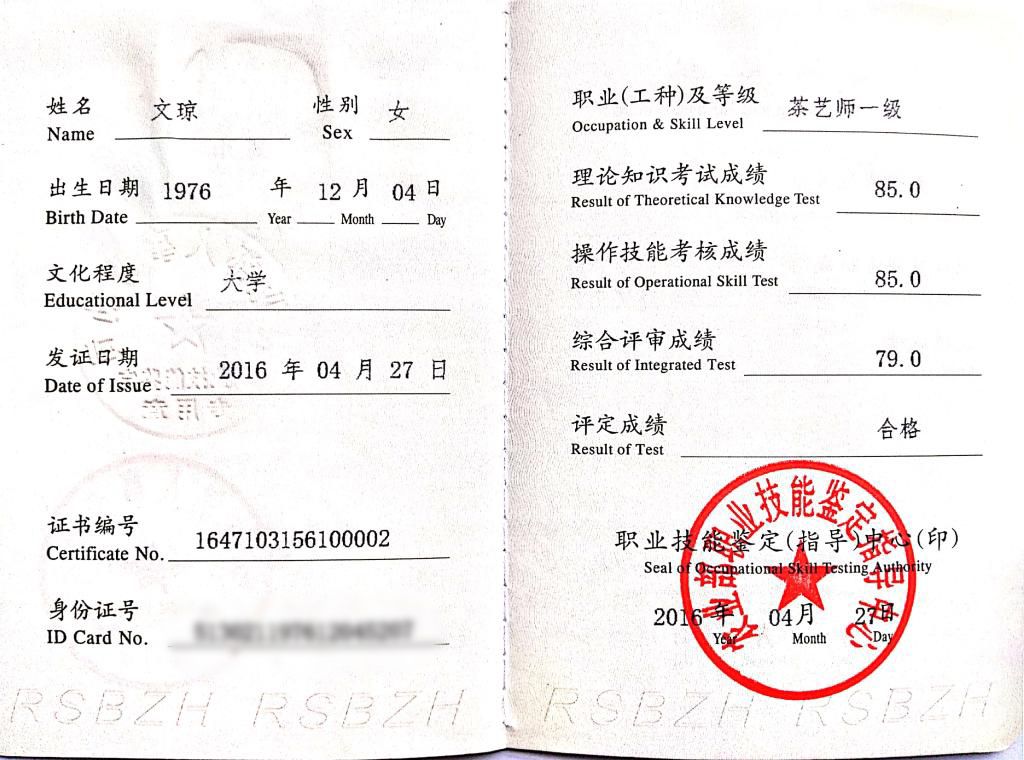 姓名 文琼 性别 女
Name Sex
出生日期 1976 年 12 月 04 日
Birth Date Year Month Day
文化程度 大学
Educational Level
发证日期 2016 年 04 月 27 日
Date of Issue
证书编号 1647103156100002
Certificate No.
身份证号
ID Card No.
RSBZH RSBZH
职业(工种)及等级 茶艺师一级
Occupation & Skill Level
理论知识考试成绩 85.0
Result of Theoretical Knowledge Test
操作技能考核成绩 85.0
Result of Operational Skill Test
综合评审成绩 79.0
Result of Integrated Test
评定成绩 合格
Result of Test
农业部职业技能鉴定指导中心
职业技能鉴定(指导)中心(印)
Seal of Occupational Skill Testing Authority
2016 年 04 月 27 日
Year Month Day
RSBZH RSBZH